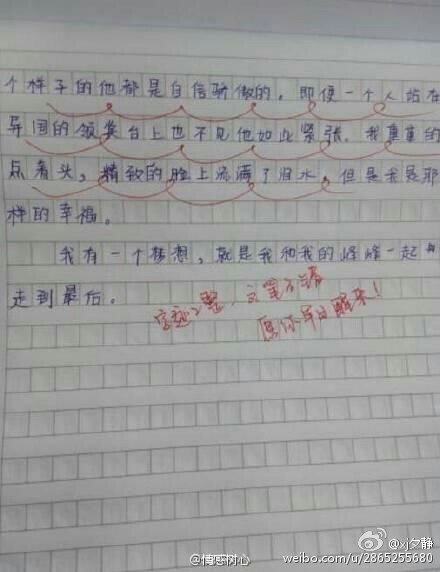 个样子的他都是自信骄傲的，即便一个人站在
异国的领奖台上也不见他如此紧张，我重重的
点着头，精致的脸上流满了泪水，但是我是那
样的幸福。
我有一个梦想，就是我和我的峰峰一起
走到最后。
字迹工整，文笔不错
愿你早日醒来！
@情感树心
@xj夕静
weibo.com/u/2865255680